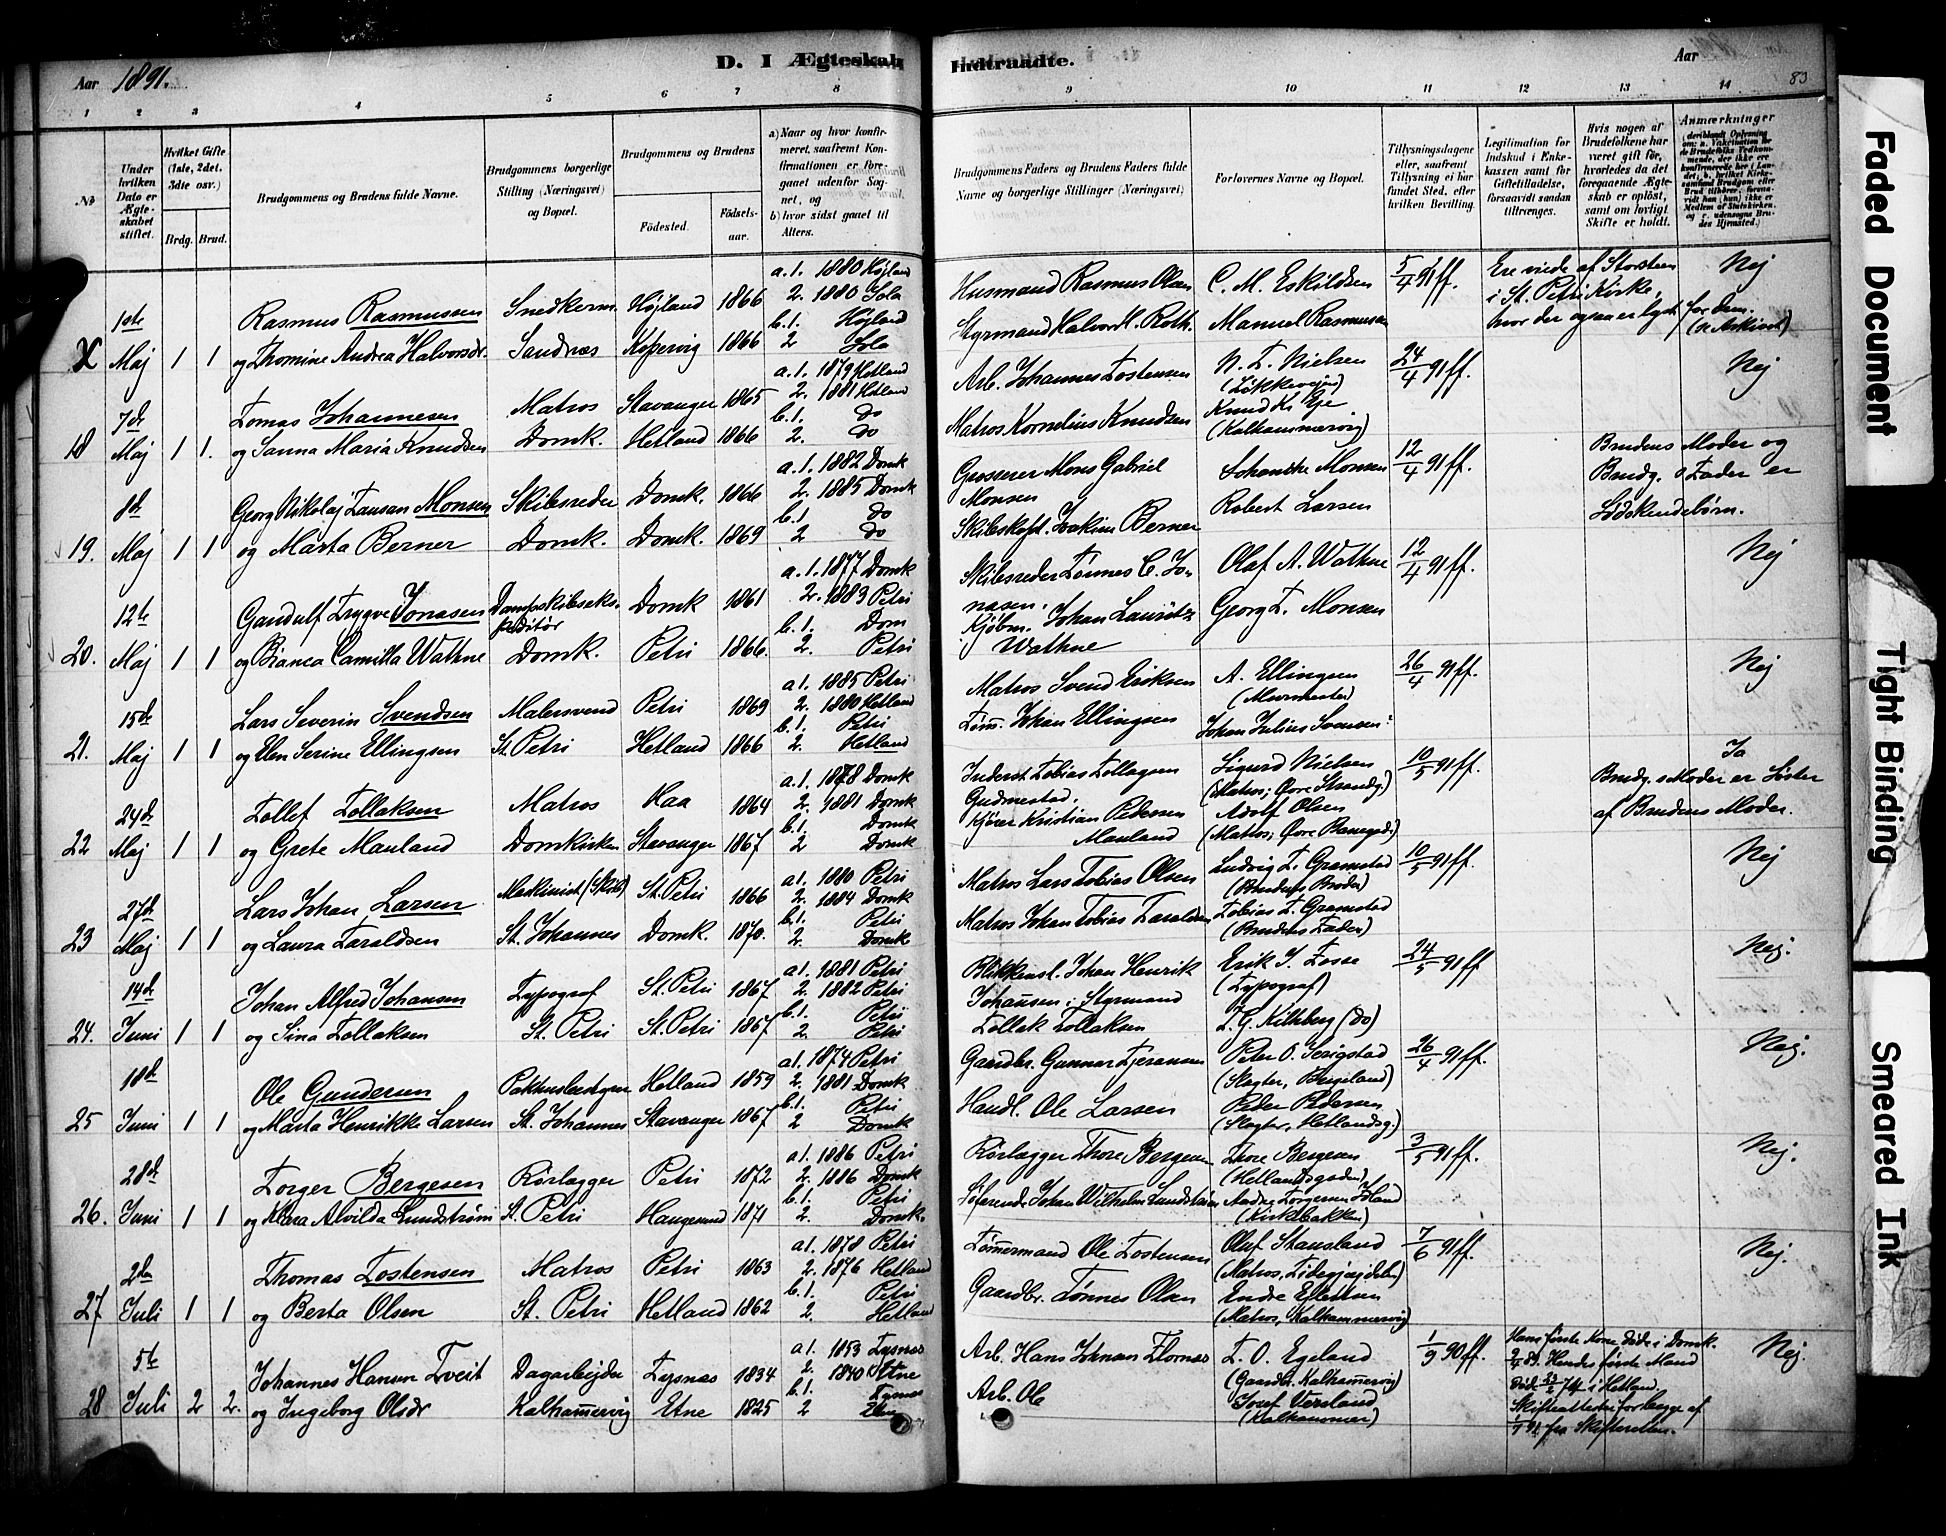 Aar 1891.
D. I Ægteskab Indtraadte.
Aar
83
1 2 3 4 5 6 7 8 9 10 11 12 13 14
No
Under hvilken Dato er Ægteskabet stiftet.
Hvilket Gifte (1ste, 2det, 3dte osv.)
Brdg. Brud.
Brudgommens og Brudens fulde Navne.
Brudgommens borgerlige Stilling (Næringsvei) og Bopæl.
Brudgommens og Brudens
Fødested.
Fødselsaar.
a) Naar og hvor konfirmeret, saafremt Konfirmationen er foregaaet udenfor Sognet, og
b) hvor sidst gaaet til Alters.
Brudgommens Faders og Brudens Faders fulde Navne og borgerlige Stillinger (Næringsvei)
Forlovernes Navne og Bopæl.
Tillysningsdagene eller, saafremt Tillysning ei har fundet Sted, efter hvilken Bevilling.
Legitimation for Indskud i Enkekassen samt for Giftetilladelse, forsaavidt saadan tiltrænges.
Hvis nogen af Brudefolkene har været gift før, hvorledes da det foregaaende Ægteskab er opløst, samt om lovligt Skifte er holdt.
Anmærkninger
1ste Maj 1 1
Rasmus Rasmussen
og Thomine Andrea Halvorsdr.
Snedkerm.
Sandnæs
Højland 1866
Kopervig 1866
a. 1. 1880 Højland
2. 1880 Sola
b. 1. Højland
2 Sola
Husmand Rasmus Olsen
Styrmand Halvor H. Roth.
C. M. Eskildsen
Manuel Rasmussen
5/4 91 ff.
Ere viede af Storsteen
i St. Petri Kirke,
hvor der ogsaa er lyst for dem.
Nej
18 7de Maj 1 1.
Tomas Johannesen
og Sanna Maria Knudsen
Matros
Domk.
Stavanger 1865
Hetland 1866
a. 1. 1879 Hetland
2. 1881 Hetland
b. 1. do
2. do
Arb. Johannes Tostensen
Matros Kornelius Knudsen
N. T. Nielsen
(Løkkevejen)
Knud K. Eje
(Kalhammervig)
24/4 91 ff.
Nej
19. 8de Maj 1 1
Georg Nikolaj Lausan Monsen
og Marta Berner
Skibsreder
Domk.
Domk. 1866
Domk. 1869
a. 1. 1882 Domk
2. 1885 Domk
b. 1 do
2 do
Grosserer Mons Gabriel
Monsen
Skibskapt. Joakim Berner
Johan Monsen
Robert Larsen
12/4 91 ff.
Brudens Moder og
Brudg.s Fader er
Sødskendebørn.
20. 12te Maj 1 1
Gandulf Trygve Jonasen
og Bianca Camilla Wathne
Dampskibseks-
peditør
Domk.
Domk 1861
Petri 1866.
a. 1. 1877 Domk
2. 1883 Petri
b. 1. Dom
2. Petri
Skibsreder Tønnes C. Jo-
nasen.
Kjøbm. Johan Lauritz
Wathne
Olaf A. Wathne
Georg L. Monsen
12/4 91 ff.
Nej
21. 15de Maj 1 1
Lars Severin Svendsen
og Elen Serine Ellingsen
Malersvend
St. Petri
Petri 1869
Hetland 1866
a 1. 1885 Petri
2. 1880 Hetland
b. 1. Petri
2. Hetland
Matros Svend Eriksen
Tøm. Johan Ellingsen
A. Ellingsen
(Murmester)
Johan Julius Svensen
26/4 91 ff.
Nej
22 24de Maj 1 1
Tollef Tollaksen
og Grete Mauland
Matros
Domkirken
Haa 1864
Stavanger 1867
a. 1. 1878 Domk
2. 1881 Domk
b. 1. Domk
2 Domk
Inderst Tobias Tollagsen
Gudmestad.
Kjører Kristian Pedersen
Mauland
Sigurd Nielsen
(Matros; Øvre Strandg.)
Adolf Olsen
(Matros; Øvre Banegd.)
10/5 91 ff.
Ja
Brudg.s Moder er Søster
af Brudens Moder.
23 27de Maj 1 1
Lars Johan Larsen
og Laura Taraldsen
Maskinist (Skib)
St. Johannes
St. Petri 1866
Domk. 1870.
a 1. 1880 Petri
2. 1884 Domk
b. 1. Petri
2. Domk
Matros Lars Tobias Olsen
Matros Johan Tobias Taraldsen
Ludvig T. Gramstad
(Brudens Broder)
Tobias T. Gramstad
(Brudens Fader)
10/5 91 ff.
Nej
24. 14de Juni 1 1
Johan Alfred Johansen
og Sina Tollaksen
Typograf
St. Petri
St. Petri 1867
St. Petri 1867
a 1. 1881 Petri
2. 1882 Petri
b. 1. Petri
2. Petri
Blikkensl. Johan Henrik
Johansen; Styrmand
Tollak Tollaksen
Erik S. Fosse
(Typograf)
(do)
24/5 91 ff
Nej.
25 18de Juni 1 1
Ole Gundersen
og Marta Henrikke Larsen
St. Johannes
Hetland 1859
Stavanger 1867
a 1. 1874 Petri
2. 1881 Domk
b. 1. Petri
2 Domk
Gaardbr. Gunnar Tjeransen
Handl. Ole Larsen
Peter O. Serigstad
(Slagter, Bergeland)
Peder Pedersen
(Slagter, Hetlandsg.)
26/4 91 ff.
Nej.
26. 28de Juni 1 1
Torger Bergesen
og Klara Alvilda Lundstrøm
Rørlægger
St. Petri
Petri 1872
Haugesund 1871
a 1. 1886 Petri
2. 1886 Domk
b. 1. Petri
2. Domk.
Rørlægger Thore Bergesen
Søfarende Johan Wilhelm Lundstrøm
Thore Bergesen
(Hetlandsgaden)
(Kirkebakken)
3/5 91 ff.
Nej.
27 2den Juli 1 1
Thomas Tostensen
og Berta Olsen
Matros
St. Petri
Petri 1863
Hetland 1862
a 1. 1878 Petri
2. 1876 Hetland
b. 1. Petri
2. Hetland
Tømmermand Ole Tostensen
Gaardbr. Tønnes Olsen
Oluf Stansland
Endre Ellertsen
(Matros, Kalhammervig)
7/6 91 ff.
Nej.
28 5te Juli 2 2.
Johannes Hansen Tveit
og Ingeborg Olsdr
Dagarbejder
Kalhammervig
Tysnæs 1834
Etne 1825
a 1. 1853 Tysnæs
2. 1840 Etne
b. 1. Tysnæs
2 Etne
Arb. Hans Johnsen Flornæs
Arb. Ole
T. O. Egeland
(Gaardbr. Kalhammervig)
Josef Versland
(Kalhammer)
1/9 90 ff.
Hans første Kone døde i Domk.
2/4 89. Hendes første Mand
død i Hetland
Skifteattester for begge af
fra Skifteretten.
Nej.
Faded Document
Tight Binding
Smeared Ink